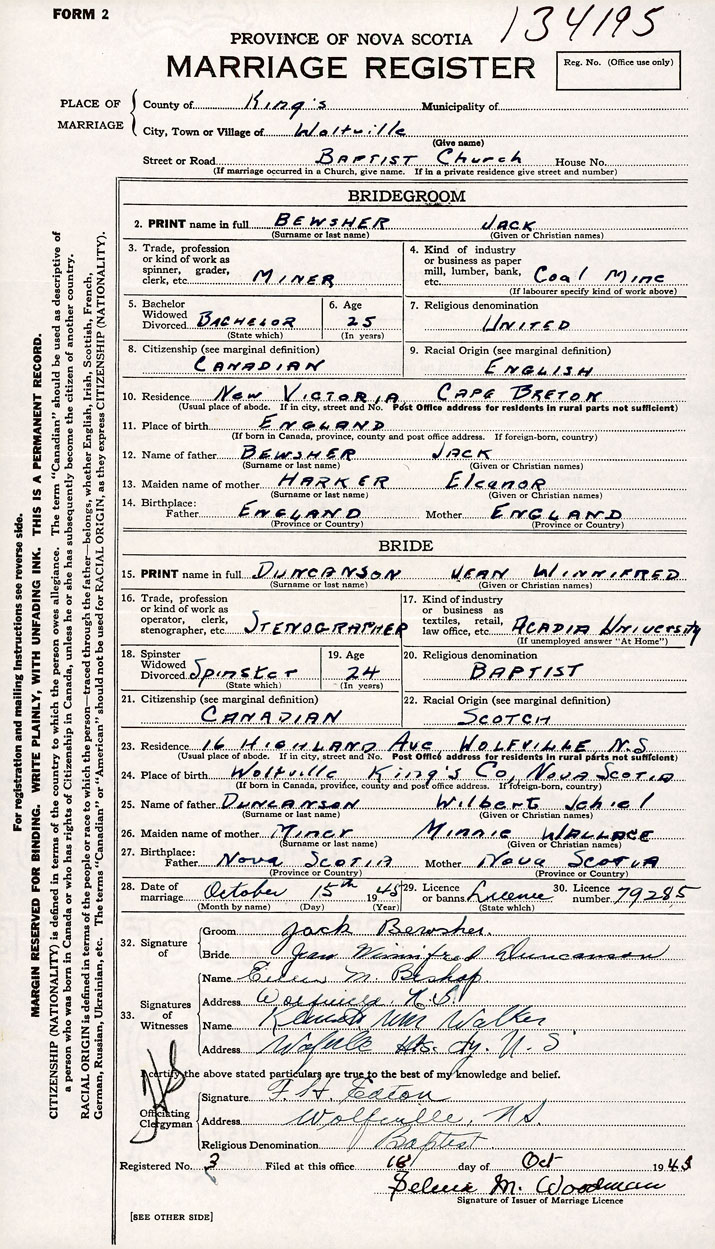 FORM 2
134195
PROVINCE OF NOVA SCOTIA
MARRIAGE REGISTER
Reg. No. (Office use only)
PLACE OF MARRIAGE
County of King's Municipality of
City, Town or Village of Wolfville
(Give name)
Street or Road BAPTIST Church House No.
(If marriage occurred in a Church, give name. If in a private residence give street and number)
BRIDEGROOM
2. PRINT name in full BEWSHER JACK
(Surname or last name) (Given or Christian names)
3. Trade, profession or kind of work as spinner, grader, clerk, etc. MINER
4. Kind of industry or business as paper mill, lumber, bank, etc. Coal Mine
(If labourer specify kind of work above)
5. Bachelor Widowed Divorced BACHELOR
(State which)
6. Age 25
(In years)
7. Religious denomination
UNITED
8. Citizenship (see marginal definition)
CANADIAN
9. Racial Origin (see marginal definition)
ENGLISH
10. Residence New VICTORIA CAPE BRETON
(Usual place of abode. If in city, street and No. Post Office address for residents in rural parts not sufficient)
11. Place of birth ENGLAND
(If born in Canada, province, county and post office address. If foreign-born, country)
12. Name of father BEWSHER JACK
(Surname or last name) (Given or Christian names)
13. Maiden name of mother HARKER Eleanor
(Surname or last name) (Given or Christian names)
14. Birthplace:
Father ENGLAND Mother ENGLAND
(Province or Country) (Province or Country)
BRIDE
15. PRINT name in full DUNCANSON JEAN WINNIFRED
(Surname or last name) (Given or Christian names)
16. Trade, profession or kind of work as operator, clerk, stenographer, etc. STENOGRAPHER
17. Kind of industry or business as textiles, retail, law office, etc. ACADIA University
(If unemployed answer "At Home")
18. Spinster Widowed Divorced Spinster
(State which)
19. Age 24
(In years)
20. Religious denomination
BAPTIST
21. Citizenship (see marginal definition)
CANADIAN
22. Racial Origin (see marginal definition)
SCOTCH
23. Residence 16 HIGHLAND Ave, WOLFVILLE N.S
(Usual place of abode. If in city, street and No. Post Office address for residents in rural parts not sufficient)
24. Place of birth Wolfville King's Co, NOVA SCOTIA
(If born in Canada, province, county and post office address. If foreign-born, country)
25. Name of father DUNCANSON Wilbert
(Surname or last name) (Given or Christian names)
26. Maiden name of mother Miner Minnie WALLACE
(Surname or last name) (Given or Christian names)
27. Birthplace:
Father NOVA SCOTIA Mother NOVA SCOTIA
(Province or Country) (Province or Country)
28. Date of marriage October 15th 1945
(Month by name) (Day) (Year)
29. Licence or banns Licence
(State which)
30. Licence number 79285
32. Signature of
Groom Jack Bewsher.
Bride Jean Winnifred Duncanson
33. Signatures of Witnesses
Name Eileen M. Bishop
Address Wolfville, N.S.
Name Kenneth Wm Walter
Address N.S
I certify the above stated particulars are true to the best of my knowledge and belief.
Officiating Clergyman
Signature F. H. Eaton
Address Wolfville, N.S.
Religious Denomination Baptist
Registered No. 3 Filed at this office 18 day of Oct 1945
Selena M. Woodman
Signature of Issuer of Marriage Licence
[SEE OTHER SIDE]
For registration and mailing instructions see reverse side.
MARGIN RESERVED FOR BINDING. WRITE PLAINLY, WITH UNFADING INK. THIS IS A PERMANENT RECORD.
CITIZENSHIP (NATIONALITY) is defined in terms of the country to which the person owes allegiance. The term "Canadian" should be used as descriptive of
a person who was born in Canada or who has rights of Citizenship in Canada, unless he or she has subsequently become the citizen of another country.
RACIAL ORIGIN is defined in terms of the people or race to which the person—traced through the father—belongs, whether English, Irish, Scottish, French,
German, Russian, Ukrainian, etc. The terms "Canadian" or "American" should not be used for RACIAL ORIGIN, as they express CITIZENSHIP (NATIONALITY).